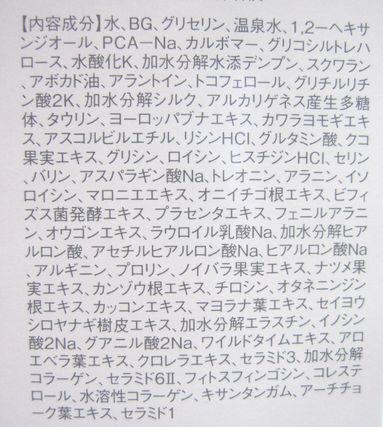 【内容成分】水、BG、グリセリン、温泉水、1,2ーヘキ
サンジオール、PCAーNa、カルボマー、グリコシルトレハ
ロース、水酸化K、加水分解水添デンプン、スクワラン、
アボカド油、アラントイン、トコフェロール、グリチルリチ
ン酸2K、加水分解シルク、アルカリゲネス産生多糖
体、タウリン、ヨーロッパブナエキス、カワラヨモギエキ
ス、アスコルビルエチル、リシンHCl、グルタミン酸、クコ
果実エキス、グリシン、ロイシン、ヒスチジンHCl、セリン
、バリン、アスパラギン酸Na、トレオニン、アラニン、イソ
ロイシン、マロニエエキス、オニイチゴ根エキス、ビフィ
ズス菌発酵エキス、プラセンタエキス、フェニルアラニ
ン、オウゴンエキス、ラウロイル乳酸Na、加水分解ヒアル
ロン酸、アセチルヒアルロン酸Na、ヒアルロン酸Na
、アルギニン、プロリン、ノイバラ果実エキス、ナツメ果
実エキス、カンゾウ根エキス、チロシン、オタネニンジン
根エキス、カッコンエキス、マヨラナ葉エキス、セイヨウ
シロヤナギ樹皮エキス、加水分解エラスチン、イノシン
酸2Na、グアニル酸2Na、ワイルドタイムエキス、アロ
エベラ葉エキス、クロレラエキス、セラミド3、加水分解
コラーゲン、セラミド6Ⅱ、フィトスフィンゴシン、コレステ
ロール、水溶性コラーゲン、キサンタンガム、アーチチョ
ーク葉エキス、セラミド1